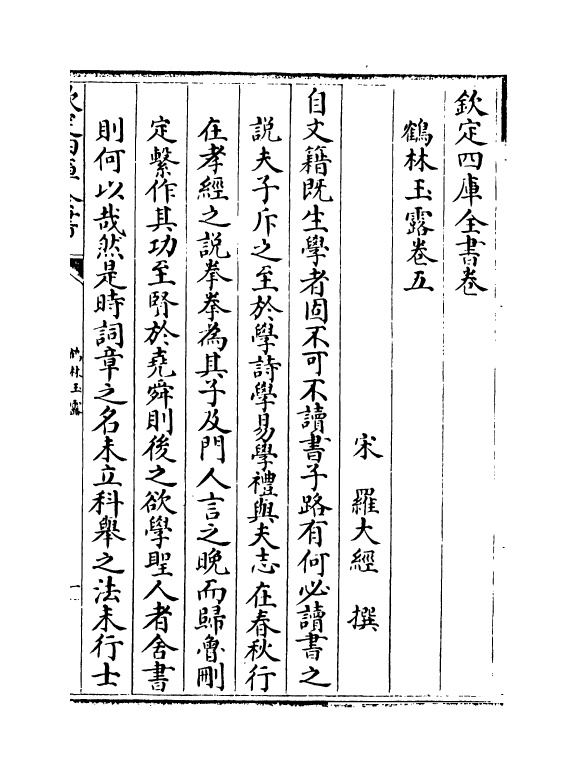 欽定四庫全書卷
鶴林玉露卷五
宋　羅大經　撰
自文籍既生學者固不可不讀書子路有何必讀書之
説夫子斥之至於學詩學易學禮與夫志在春秋行
在孝經之説拳拳為其子及門人言之晚而歸魯刪
定繫作其功至賢於堯舜則後之欲學聖人者舍書
則何以哉然是時詞章之名未立科舉之法未行士
欽定四庫全書
鶴林玉露
一